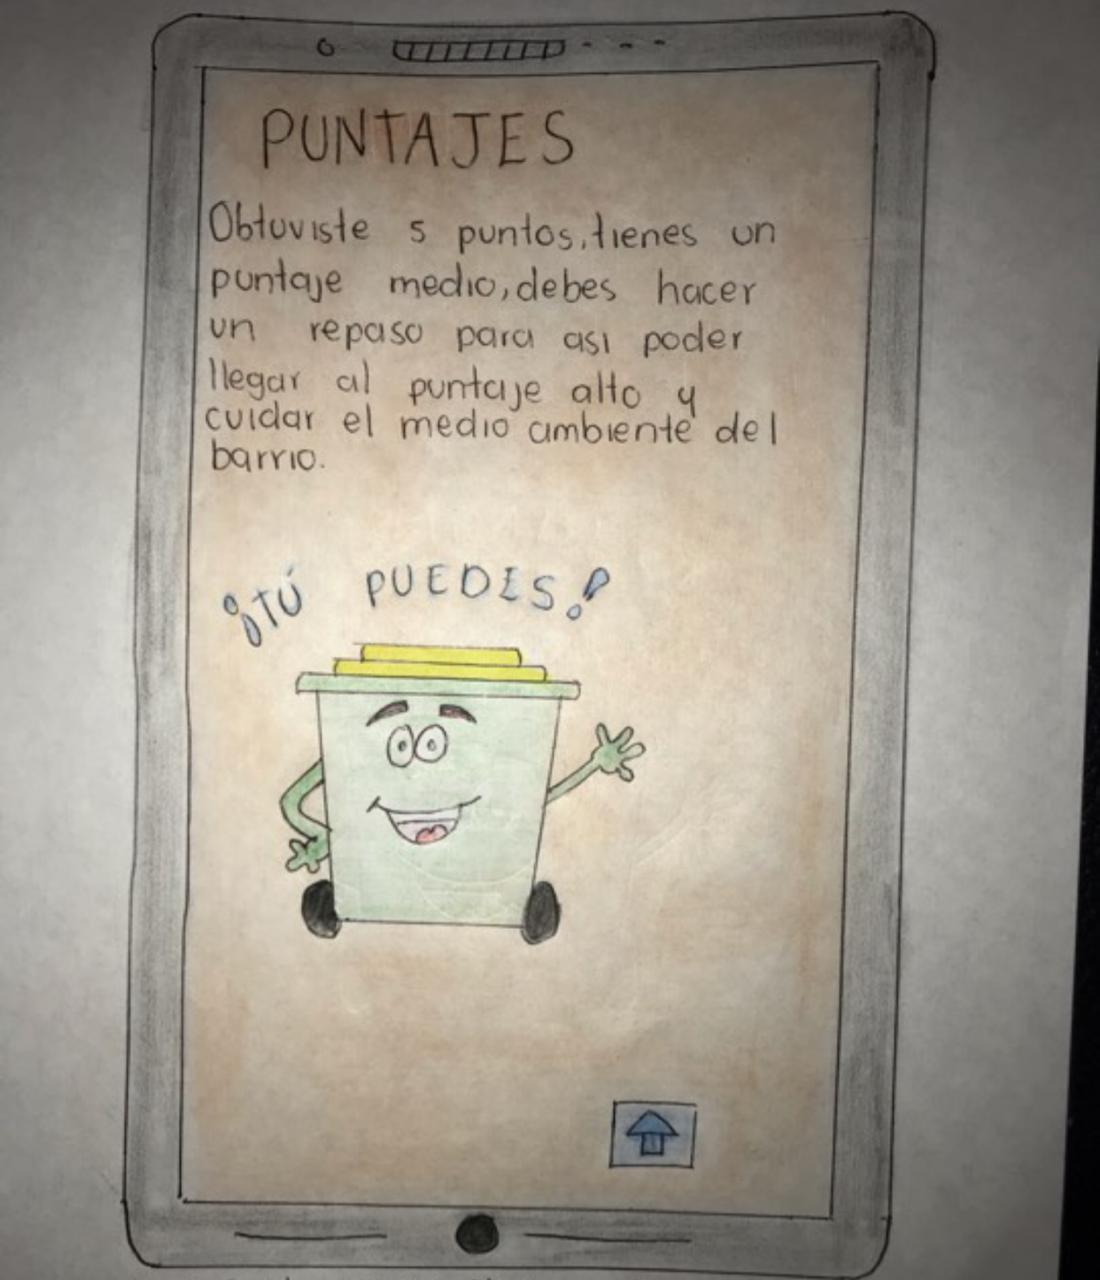 PUNTAJES
Obtuviste 5 puntos, tienes un
puntaje medio, debes hacer
un repaso para asi poder
llegar al puntaje alto y
cuidar el medio ambiente del
barrio.
¡TÚ PUEDES!